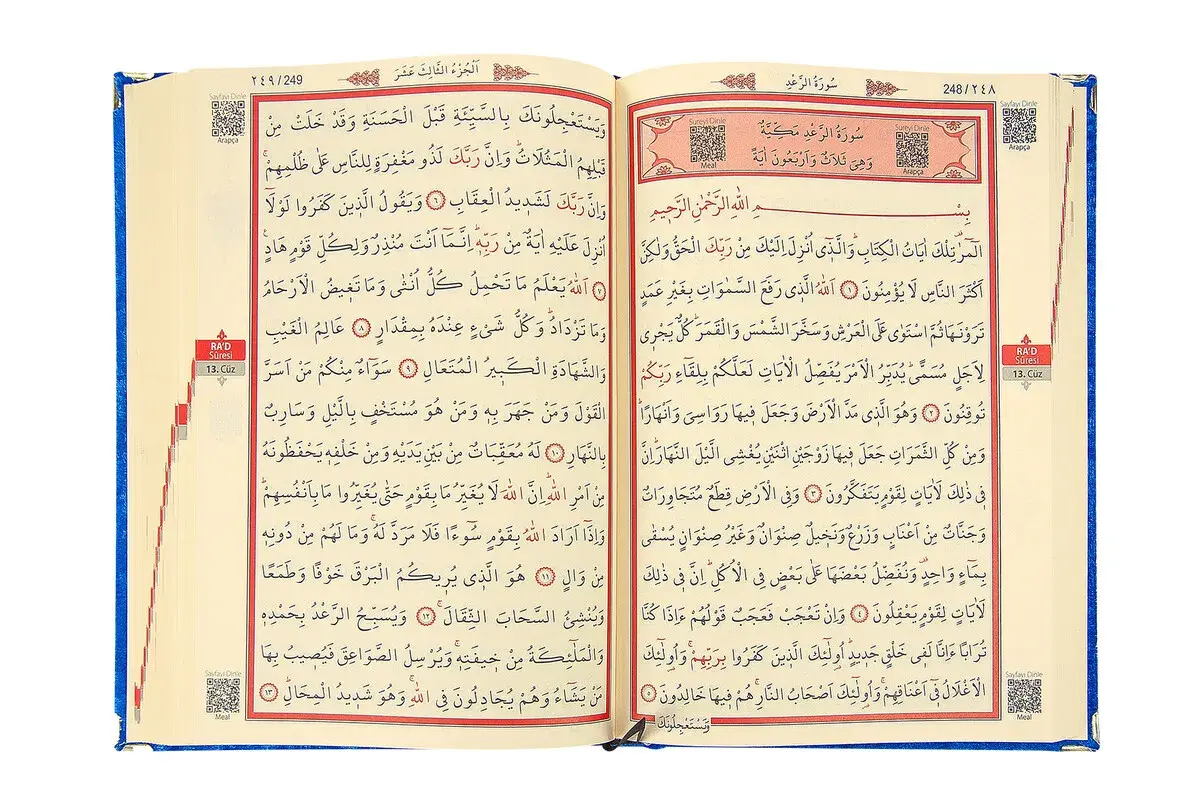 248/٢٤٨
سُورَةُ الرَّعْدِ
Sayfayı Dinle
Arapça
Sureyi Dinle
Meal
سُورَةُ الرَّعْدِ مَكِّيَّةٌ
وَهِيَ ثَلَاثٌ وَاَرْبَعُونَ اٰيَةً
Sureyi Dinle
Arapça
بِسْــــــــمِ اللّٰهِ الرَّحْمٰنِ الرَّحٖيمِ
الٓمٓرٰ۠ تِلْكَ اٰيَاتُ الْكِتَابِۜ وَالَّذٖٓي اُنْزِلَ اِلَيْكَ مِنْ رَبِّكَ الْحَقُّ وَلٰكِنَّ
اَكْثَرَ النَّاسِ لَا يُؤْمِنُونَ ﴿١﴾ اَللّٰهُ الَّذٖي رَفَعَ السَّمٰوَاتِ بِغَيْرِ عَمَدٍ
تَرَوْنَهَا ثُمَّ اسْتَوٰى عَلَى الْعَرْشِ وَسَخَّرَ الشَّمْسَ وَالْقَمَرَۜ كُلٌّ يَجْرٖي
لِاَجَلٍ مُسَمًّىۜ يُدَبِّرُ الْاَمْرَ يُفَصِّلُ الْاٰيَاتِ لَعَلَّكُمْ بِلِقَٓاءِ رَبِّكُمْ
تُوقِنُونَ ﴿٢﴾ وَهُوَ الَّذٖي مَدَّ الْاَرْضَ وَجَعَلَ فٖيهَا رَوَاسِيَ وَاَنْهَارًاۜ
وَمِنْ كُلِّ الثَّمَرَاتِ جَعَلَ فٖيهَا زَوْجَيْنِ اثْنَيْنِ يُغْشِي الَّيْلَ النَّهَارَۜ اِنَّ
فٖي ذٰلِكَ لَاٰيَاتٍ لِقَوْمٍ يَتَفَكَّرُونَ ﴿٣﴾ وَفِي الْاَرْضِ قِطَعٌ مُتَجَاوِرَاتٌ
وَجَنَّاتٌ مِنْ اَعْنَابٍ وَزَرْعٌ وَنَخٖيلٌ صِنْوَانٌ وَغَيْرُ صِنْوَانٍ يُسْقٰى
بِمَٓاءٍ وَاحِدٍ۠ وَنُفَضِّلُ بَعْضَهَا عَلٰى بَعْضٍ فِي الْاُكُلِۜ اِنَّ فٖي ذٰلِكَ
لَاٰيَاتٍ لِقَوْمٍ يَعْقِلُونَ ﴿٤﴾ وَاِنْ تَعْجَبْ فَعَجَبٌ قَوْلُهُمْ ءَاِذَا كُنَّا
تُرَابًا ءَاِنَّا لَفٖي خَلْقٍ جَدٖيدٍۜ اُو۬لٰٓئِكَ الَّذٖينَ كَفَرُوا بِرَبِّهِمْۚ وَاُو۬لٰٓئِكَ
الْاَغْلَالُ فٖٓي اَعْنَاقِهِمْۚ وَاُو۬لٰٓئِكَ اَصْحَابُ النَّارِۚ هُمْ فٖيهَا خَالِدُونَ ﴿٥﴾
وَيَسْتَعْجِلُونَكَ
RA'D
Sûresi
13. Cüz
Sayfayı Dinle
Meal
٢٤٩/249
اَلْجُزْءُ الثَّالِثَ عَشَرَ
Sayfayı Dinle
Arapça
وَيَسْتَعْجِلُونَكَ بِالسَّيِّئَةِ قَبْلَ الْحَسَنَةِ وَقَدْ خَلَتْ مِنْ
قَبْلِهِمُ الْمَثُلَاتُۜ وَاِنَّ رَبَّكَ لَذُو مَغْفِرَةٍ لِلنَّاسِ عَلٰى ظُلْمِهِمْۚ
وَاِنَّ رَبَّكَ لَشَدٖيدُ الْعِقَابِ ﴿٦﴾ وَيَقُولُ الَّذٖينَ كَفَرُوا لَوْلَٓا
اُنْزِلَ عَلَيْهِ اٰيَةٌ مِنْ رَبِّهٖۜ اِنَّمَٓا اَنْتَ مُنْذِرٌ وَلِكُلِّ قَوْمٍ هَادٍ۟
﴿٧﴾ اَللّٰهُ يَعْلَمُ مَا تَحْمِلُ كُلُّ اُنْثٰى وَمَا تَغٖيضُ الْاَرْحَامُ
وَمَا تَزْدَادُۜ وَكُلُّ شَيْءٍ عِنْدَهُ بِمِقْدَارٍ ﴿٨﴾ عَالِمُ الْغَيْبِ
وَالشَّهَادَةِ الْكَبٖيرُ الْمُتَعَالِ ﴿٩﴾ سَوَٓاءٌ مِنْكُمْ مَنْ اَسَرَّ
الْقَوْلَ وَمَنْ جَهَرَ بِهٖ وَمَنْ هُوَ مُسْتَخْفٍ بِالَّيْلِ وَسَارِبٌ
بِالنَّهَارِ ﴿١٠﴾ لَهُ مُعَقِّبَاتٌ مِنْ بَيْنِ يَدَيْهِ وَمِنْ خَلْفِهٖ يَحْفَظُونَهُ
مِنْ اَمْرِ اللّٰهِۜ اِنَّ اللّٰهَ لَا يُغَيِّرُ مَا بِقَوْمٍ حَتّٰى يُغَيِّرُوا مَا بِاَنْفُسِهِمْۜ
وَاِذَٓا اَرَادَ اللّٰهُ بِقَوْمٍ سُٓوءًا فَلَا مَرَدَّ لَهُۚ وَمَا لَهُمْ مِنْ دُونِهٖ
مِنْ وَالٍ ﴿١١﴾ هُوَ الَّذٖي يُرٖيكُمُ الْبَرْقَ خَوْفًا وَطَمَعًا
وَيُنْشِئُ السَّحَابَ الثِّقَالَۚ ﴿١٢﴾ وَيُسَبِّحُ الرَّعْدُ بِحَمْدِهٖ
وَالْمَلٰٓئِكَةُ مِنْ خٖيفَتِهٖۚ وَيُرْسِلُ الصَّوَاعِقَ فَيُصٖيبُ بِهَا
مَنْ يَشَٓاءُ وَهُمْ يُجَادِلُونَ فِي اللّٰهِۚ وَهُوَ شَدٖيدُ الْمِحَالِۜ ﴿١٣﴾
RA'D
Sûresi
13. Cüz
Sayfayı Dinle
Meal